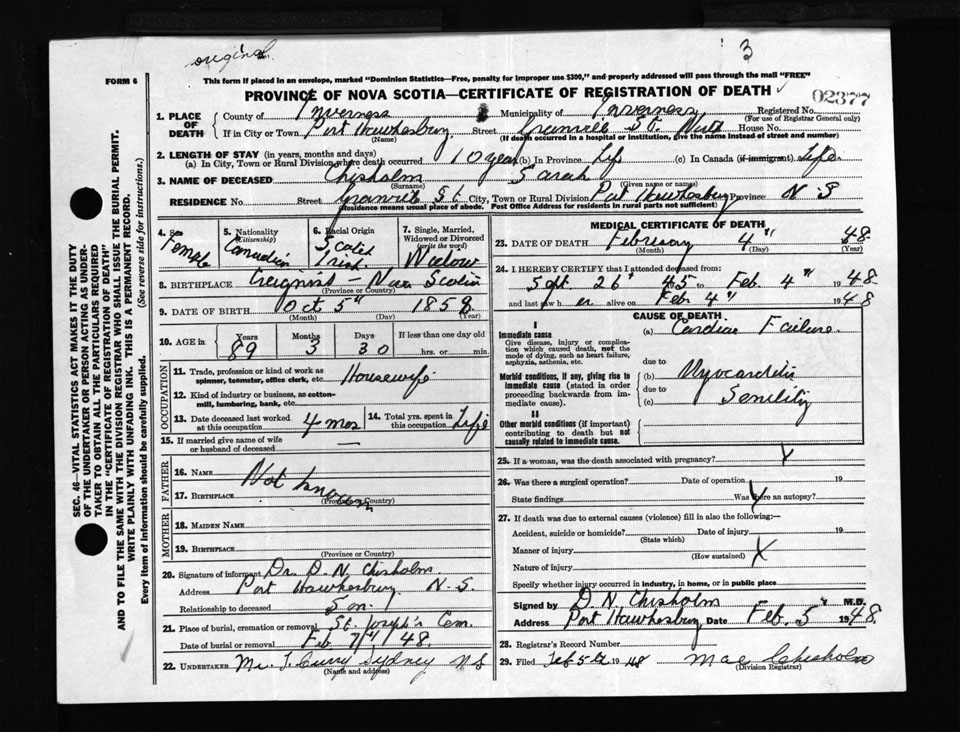 original
3
FORM 6
This form if placed in an envelope, marked "Dominion Statistics—Free, penalty for improper use $300," and properly addressed will pass through the mail "FREE"
PROVINCE OF NOVA SCOTIA—CERTIFICATE OF REGISTRATION OF DEATH
02377
1. PLACE OF DEATH County of Inverness Municipality of Inverness Registered No.
(For use of Registrar General only)
If in City or Town Port Hawkesbury Street Granville St. House No.
(Name) (If death occurred in a hospital or institution, give the name instead of street and number)
2. LENGTH OF STAY (in years, months and days)
(a) In City, Town or Rural Division where death occurred 10 years (b) In Province Life (c) In Canada (if immigrant) Life
3. NAME OF DECEASED Chisholm Sarah
(Surname) (Given name or names)
RESIDENCE No. Street Granville St. City, Town or Rural Division Port Hawkesbury Province N S
(Residence means usual place of abode. Post Office Address for residents in rural parts not sufficient)
4. Sex Female
5. Nationality (Citizenship) Canadian
6. Racial Origin Scotch Irish
7. Single, Married, Widowed or Divorced (write the word) Widow
8. BIRTHPLACE Creignish Nova Scotia
(Province or Country)
9. DATE OF BIRTH Oct 5" 1858
(Month) (Day) (Year)
10. AGE in Years 89 Months 3 Days 30 If less than one day old hrs. or min.
OCCUPATION
11. Trade, profession or kind of work as spinner, teamster, office clerk, etc. Housewife
12. Kind of industry or business, as cotton-mill, lumbering, bank, etc.
13. Date deceased last worked at this occupation 4 mos
14. Total yrs. spent in this occupation Life
15. If married give name of wife or husband of deceased —
FATHER
16. NAME Not known
17. BIRTHPLACE
(Province or Country)
MOTHER
18. MAIDEN NAME
19. BIRTHPLACE
(Province or Country)
20. Signature of informant Dr. D. N. Chisholm.
Address Port Hawkesbury N. S.
Relationship to deceased Son
21. Place of burial, cremation or removal St. Joseph's Cem.
Date of burial or removal Feb 7"/48.
22. UNDERTAKER Mr. J. Curry Sydney N S
(Name and address)
MEDICAL CERTIFICATE OF DEATH
23. DATE OF DEATH February 4" 48
(Month) (Day) (Year)
24. I HEREBY CERTIFY that I attended deceased from:
Sept. 26" 45 to Feb. 4" 1948
and last saw her alive on Feb 4" 1948
CAUSE OF DEATH
I
Immediate cause
Give disease, injury or complication which caused death, not the mode of dying, such as heart failure, asphyxia, asthenia, etc.
(a) Cardiac Failure.
due to
Morbid conditions, if any, giving rise to immediate cause (stated in order proceeding backwards from immediate cause).
(b) Myocarditis
due to
(c) Senility
II
Other morbid conditions (if important) contributing to death but not causally related to immediate cause.
25. If a woman, was the death associated with pregnancy? X
26. Was there a surgical operation? Date of operation 19
State findings Was there an autopsy?
27. If death was due to external causes (violence) fill in also the following:—
Accident, suicide or homicide? Date of injury 19
(State which)
Manner of injury X
(How sustained)
Nature of injury
Specify whether injury occurred in industry, in home, or in public place
Signed by D N Chisholm M.D.
Address Port Hawkesbury Date Feb. 5 1948.
28. Registrar's Record Number
29. Filed Feb 5th 1948 Mae Chisholm
(Division Registrar)
SEC. 46—VITAL STATISTICS ACT MAKES IT THE DUTY OF THE UNDERTAKER OR PERSON ACTING AS UNDERTAKER TO OBTAIN ALL THE PARTICULARS REQUIRED IN THE "CERTIFICATE OF REGISTRATION OF DEATH" AND TO FILE THE SAME WITH THE DIVISION REGISTRAR WHO SHALL ISSUE THE BURIAL PERMIT.
WRITE PLAINLY WITH UNFADING INK. THIS IS A PERMANENT RECORD.
Every item of information should be carefully supplied. (See reverse side for instructions.)